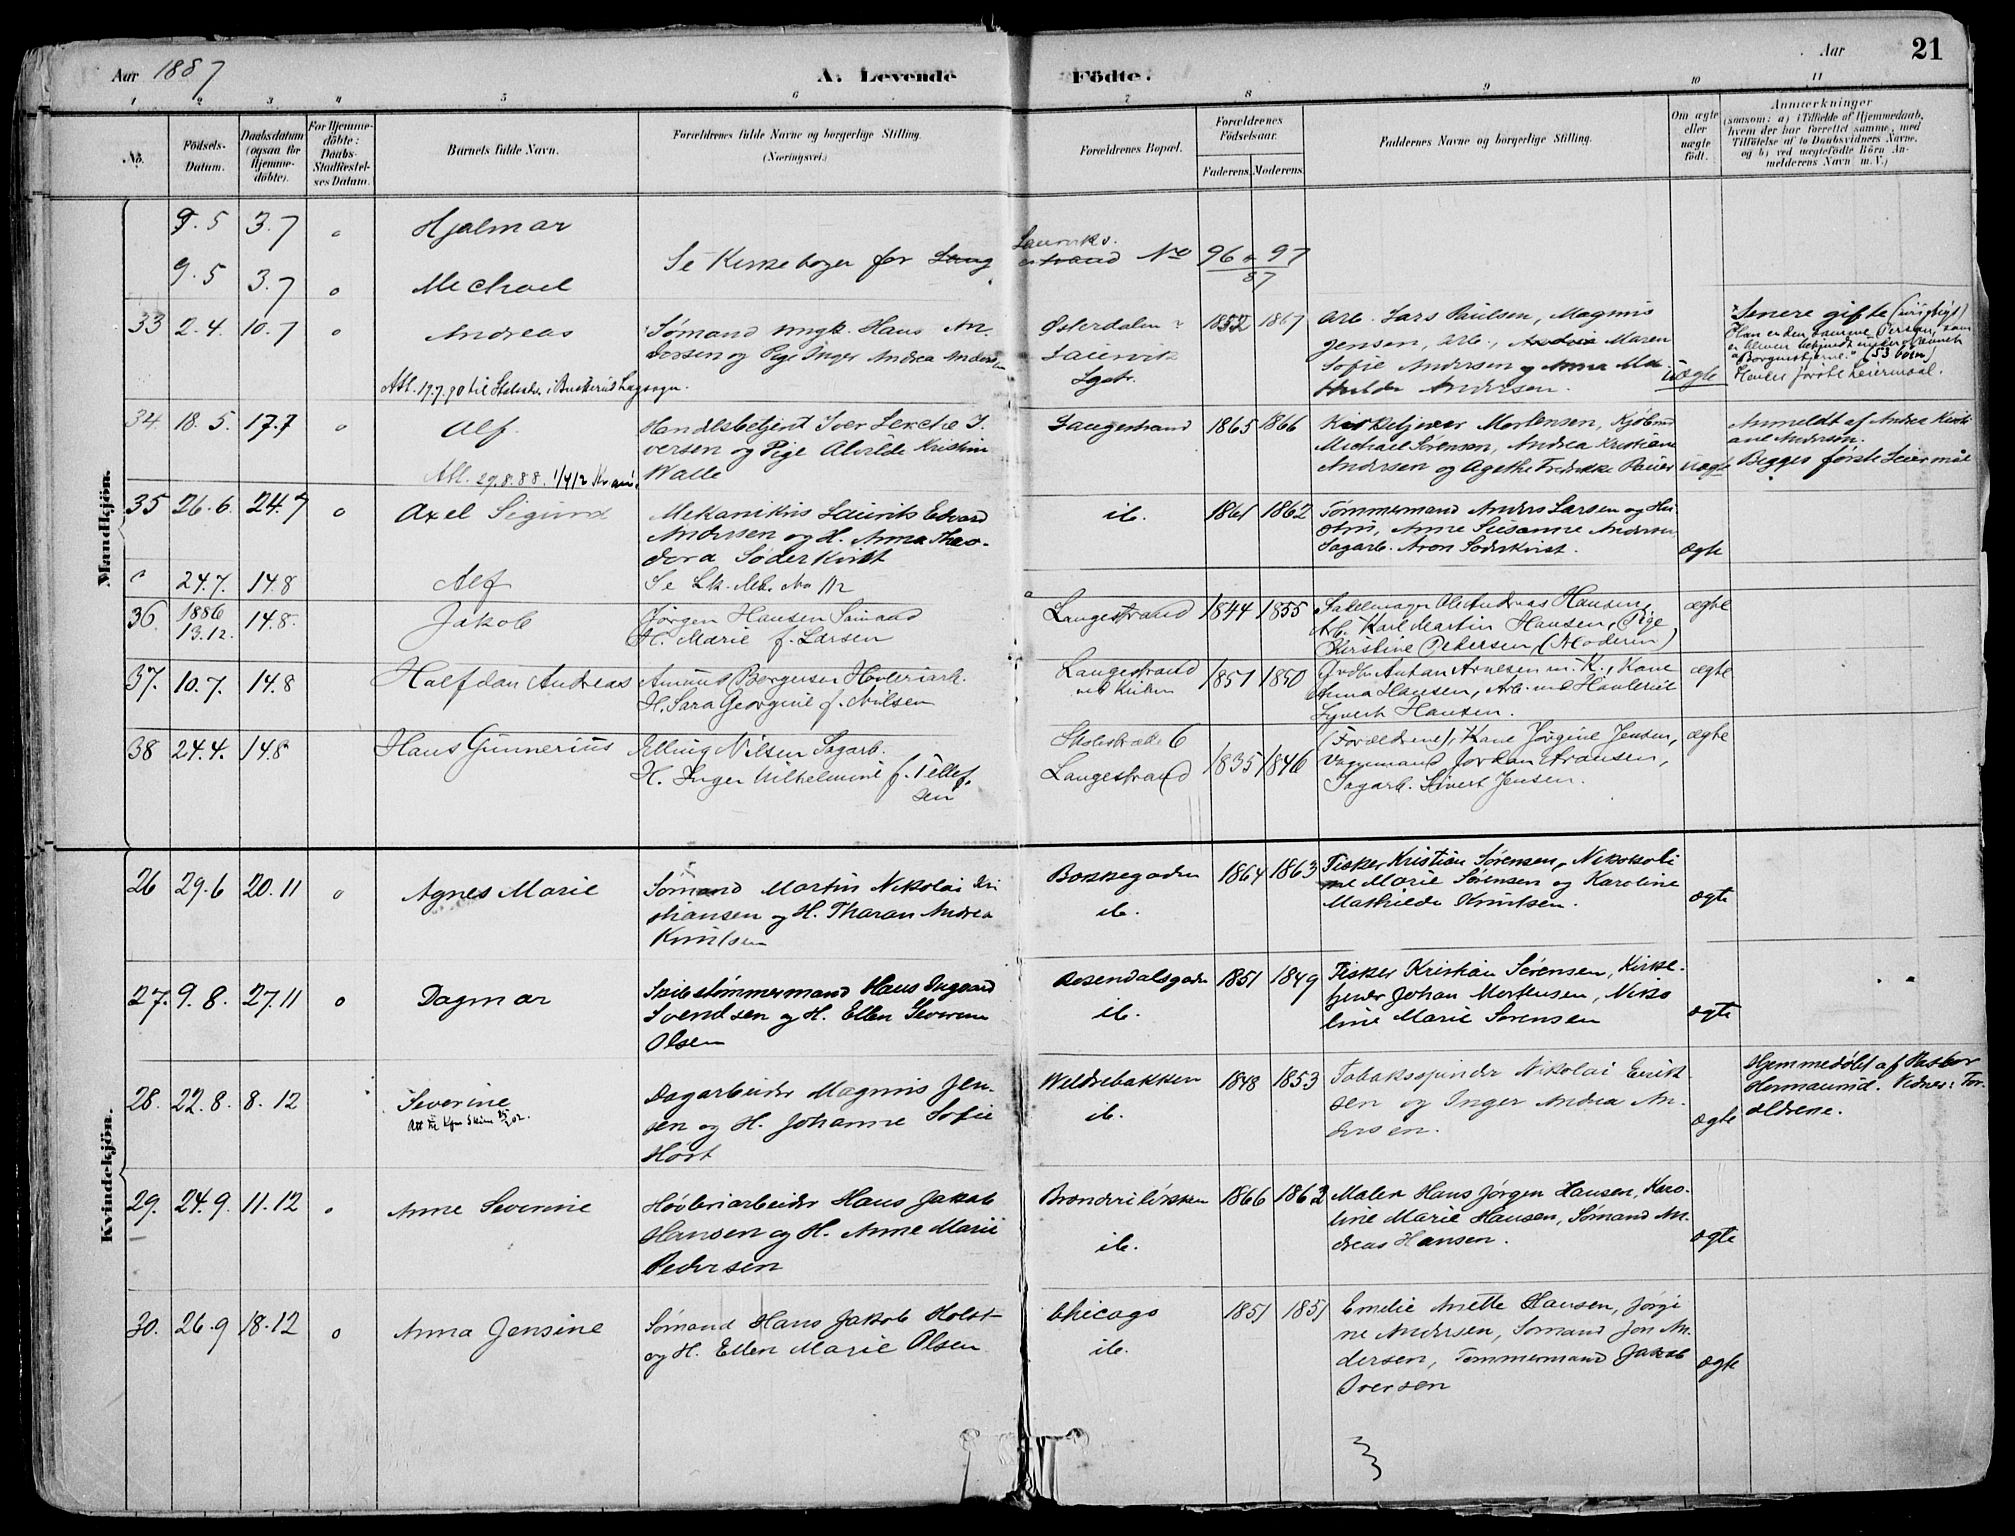 Aar 1887
A. Levende
Födte.
Aar
21
1 2 3 4 5 6 7 8 9 10 11
No.
Födsels-
Datum.
Daabsdatum
(ogsaa for
Hjemme-
döbte).
For Hjemme-
döbte:
Daabs-
Stadfæstel-
ses Datum.
Barnets fulde Navn.
Forældrenes fulde Navne og borgerlige Stilling.
(Næringsvei.)
Forældrenes Bopæl.
Forældrenes
Födselsaar.
Faderens. Moderens.
Faddernes Navne og borgerlige Stilling.
Om ægte
eller
uægte
födt.
Anmærkninger
(saasom: a) i Tilfælde af Hjemmedaab,
hvem der har forrettet samme, med
Tilföielse af to Daabsvidners Navne,
og b) ved uægtefödte Börn An-
melderens Navn m. V.)
Mandkjön.
9.5 3.7 Hjalmar
9.5 3.7 Michael
Se Kirkeboger for Lang
Laurviks
strand No 96 & 97
87
33 2.4. 10.7 Andreas
Sømand ungk. Hans An-
dersen og Pige Inger Andrea Anders
Østerdalen
Laurvik
1852 1867
Arb. Lars Paulsen, Magnus
Jensen, arb., Maren
Sofie Andersen og Anna Ma
Hulda Andersen.
uægte
Senere gifte (urigtigt)
34 18.5. 17.7 Alf.
Att. 29.8.88.
Handelsbetjent Iver Lerche I-
versen og Pige Alvilde Kristine
Walle
Langestrand 1865 1866
Kirketjener Mortensen, Kjøbmd
Michael Sørensen, Andrea Kristiane
Andersen og Agethe Fredrikke Paulsen
uægte
Anmeldt af Andrea Kristi
ane Andersen.
Begges første Leiermål
35 26.6. 24.7 Axel Sigurd
Mekanikus Laurits Edvard
Andersen og H. Anna Theo-
dora Søderkvist
ib. 1861 1862
Tømmermand Anders Larsen og Hu-
stru, Anne Susanne Andersen
Sagarb. Aron Søderkvist.
ægte
24.7. 14.8 Alf
Se Lk. Mb. No 112
36. 1886
13.12. 14.8. Jakob
Jørgen Hansen Sømand
H. Marie f. Larsen
Langestrand 1844 1855
Sadelmager Ole Andreas Hansen,
Arb. Karl Martin Hansen, Pige
Kirstine Pedersen (Moderen)
ægte
37. 10.7. 14.8 Halfdan Andreas
Amund Borgersen Høvleriarb.
H. Sara Georgine f. Nilsen
Langestrand
ved Kirken
1851 1850
Anton Arnesen m. K., Kone
Anna Hansen, Arb. ved Høvleriet
Syvert Hansen.
ægte
38 24.4. 14.8 Hans Gunnerius
Elling Nilsen Sagarb.
H. Inger Wilhelmine f. Tellef-
sen
Skolestræde 6
Langestrand
1835 1846
(Forældrene), Kone Jørgine Jensen,
Vognmand Johan Fransen,
Sagarb. Sivert Jensen.
ægte
Kvindekjön.
26 29.6 20.11 Agnes Marie
Sømand Martin Nikolai Kri
stiansen og H. Tharan Andrea
Knutsen
Bøkkegaden
ib.
1864 1863
Fisker Kristian Sørensen, Nikoli
ne Marie Sørensen og Karoline
Mathilde Knutsen.
ægte
27. 9.8. 27.11 Dagmar
Skibstømmermand Hans Ingvard
Svendsen og H. Ellen Severine
Olsen
Rosendalsgaden
ib.
1851 1849
Fisker Kristian Sørensen, Kirke-
tjener Johan Mortensen, Niko
line Marie Sørensen
ægte
28. 22.8. 8.12 Severine
Dagarbeider Magnus Jen-
sen og H. Johanne Sofie
Hort
Weldrebakken
ib.
1848 1853
Tobaksspinder Nikolai Erik-
sen og Inger Andrea An-
dersen.
ægte
Hjemmedøbt af Pastor
Hermanrud. Vidner: For-
ældrene.
29. 24.9. 11.12 Anne Severine
Høvleriarbeider Hans Jakob
Hansen og H. Anne Marie
Pedersen
Brænderiløkken
ib.
1866 1862
Maler Hans Jørgen Hansen, Karo-
line Marie Hansen, Sømand An-
dreas Hansen.
ægte
30. 26.9 18.12 Anna Jensine
Sømand Hans Jakob Holst
og H. Ellen Marie Olsen
Chicago
ib.
1851 1851
Emilie Anette Hansen, Jørgi
ne Andersen, Sømand Jon An-
dersen, Tømmermand Jakob
Iversen
ægte